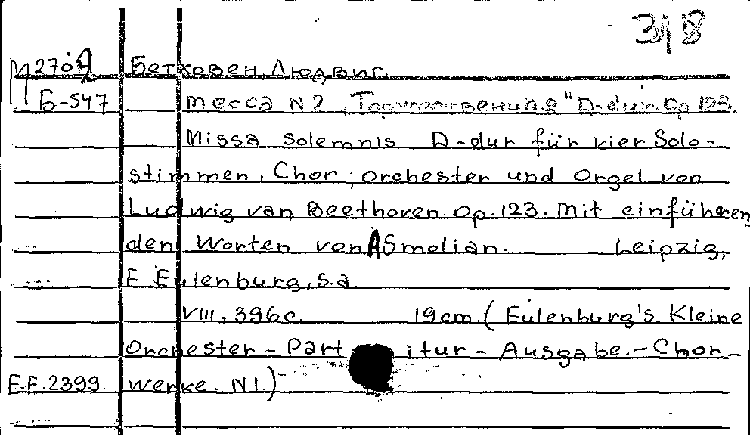 318
М2702 Бетховен, Людвиг.
Б-547 Месса N 2 „Торжественная" D-dur. Op 123.
Missa solemnis D-dur für vier Solo-
stimmen, Chor, orchester und Orgel von
Ludwig van Beethoven Op.123. Mit einführen
den Worten von A Smolian. Leipzig,
E. Eulenburg, s.a.
VIII, 396c. 19cm (Eulenburg's Kleine
Orchester-Partitur-Ausgabe.-Chor-
E.E.2399. werke. N1.)